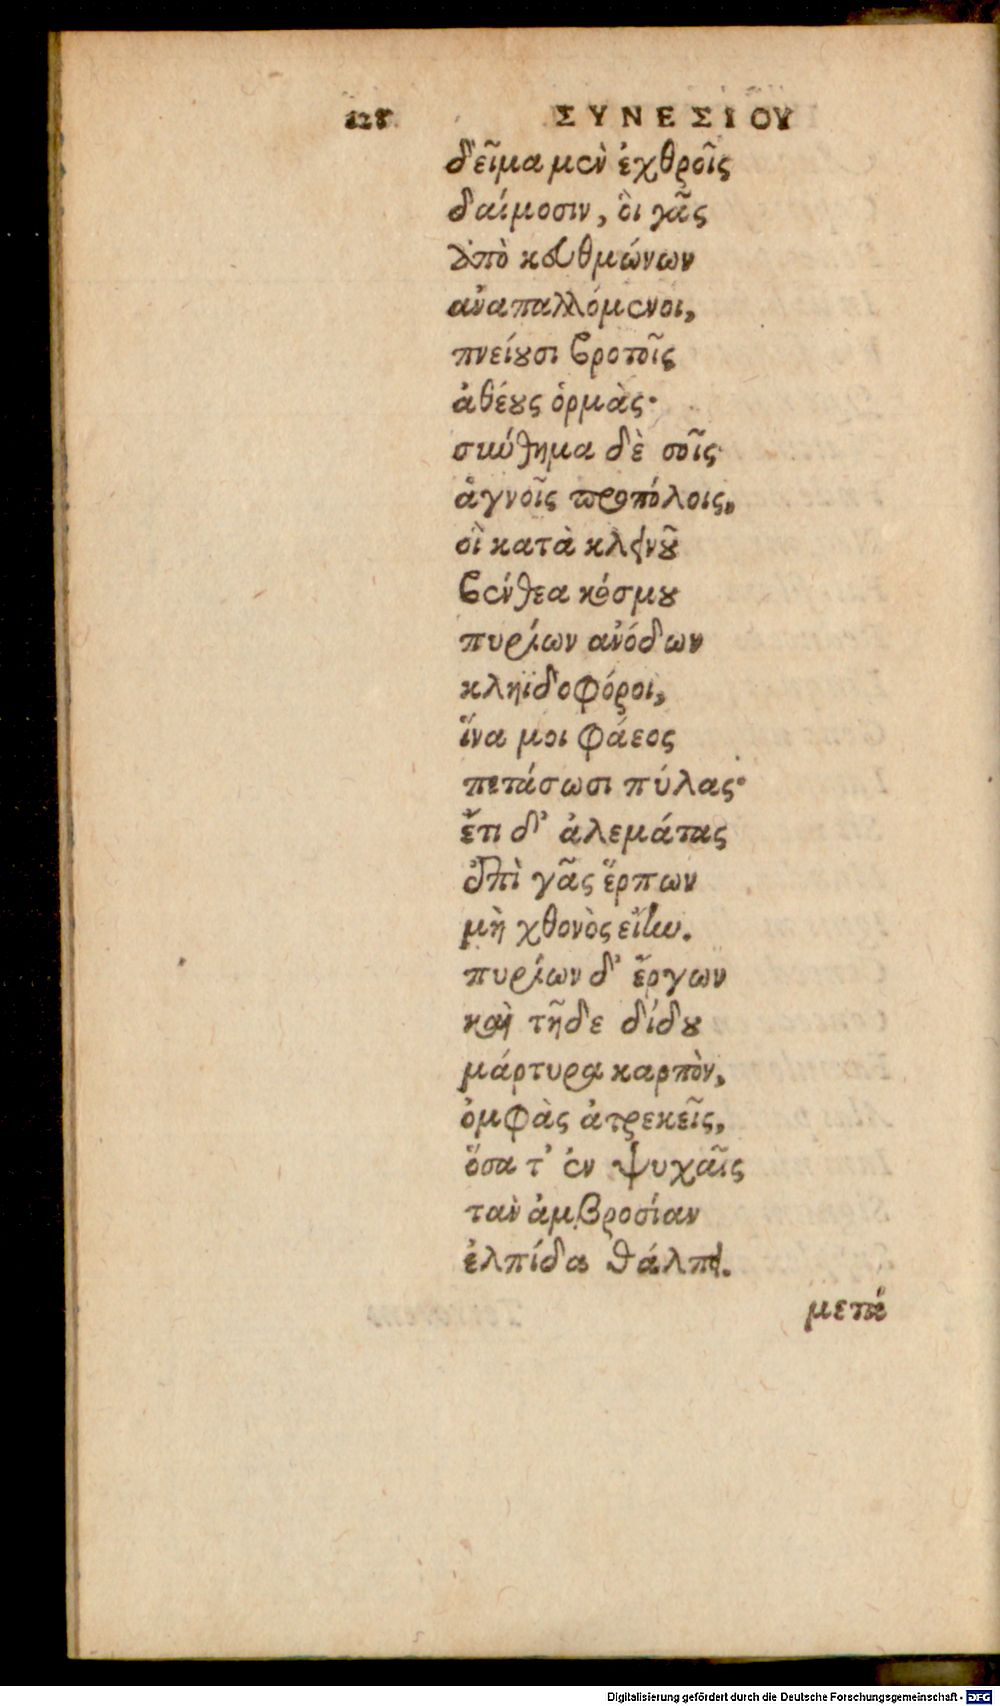 128 ΣΥΝΕΣΙΟΥ
δεῖμα μὲν ἐχθροῖς
δαίμοσιν, οἳ γᾶς
ὑπὸ κευθμώνων
ἀναπαλλόμενοι,
πνείουσι βροτοῖς
ἀθέους ὁρμάς·
σύνθημα δὲ σοῖς
ἁγνοῖς προπόλοις,
οἳ κατὰ κλεινοῦ
βένθεα κόσμου
πυρίων ἀνόδων
κληϊδοφόροι,
ἵνα μοι φάεος
πετάσωσι πύλας·
ἔτι δ' ἀλεμάτας
ἐπὶ γᾶς ἕρπων
μὴ χθονὸς εἴην.
πυρίων δ' ἔργων
καὶ τῇδε δίδου
μάρτυρα καρπὸν,
ὀμφὰς ἀτρεκεῖς,
ὅσα τ' ἐν ψυχαῖς
τὰν ἀμβροσίαν
ἐλπίδα θάλπει.
Digitalisierung gefördert durch die Deutsche Forschungsgemeinschaft - DFG